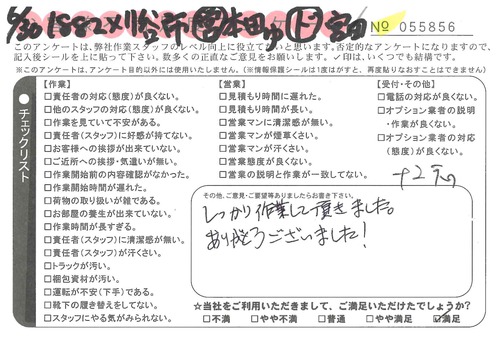 6/30 1882 刈谷所 営 本田 ゆ ド 宮田 № 055856
このアンケートは、弊社作業スタッフのレベル向上に役立てたいと思います。否定的なアンケートになりますので、
記入後シールを上に貼って下さい。数多くの正直なご意見をお願いします。✓印は、いくつでも結構です。
※このアンケートは、アンケート目的以外には使用いたしません。（※情報保護シールは1度はがすと、再度貼りなおすことはできません）
チェックリスト
【作業】
□責任者の対応(態度)が良くない。
□他のスタッフの対応(態度)が良くない。
□作業を見ていて不安がある。
□責任者(スタッフ)に好感が持てない。
□お客様への挨拶が出来ていない。
□ご近所への挨拶・気遣いが無い。
□作業開始前の内容確認がなかった。
□作業開始時間が遅れた。
□荷物の取り扱いが雑である。
□お部屋の養生が出来ていない。
□作業時間が長すぎる。
□責任者(スタッフ)に清潔感が無い。
□責任者(スタッフ)が汗くさい。
□トラックが汚い。
□梱包資材が汚い。
□運転が不安(下手)である。
□靴下の履き替えをしてない。
□スタッフにやる気がみられない。
【営業】
□見積もり時間に遅れた。
□見積もり時間が長い。
□営業マンに清潔感が無い。
□営業マンが煙草くさい。
□営業マンが汗くさい。
□営業態度が良くない。
□営業の説明と作業が一致してない。
【受付・その他】
□電話の対応が良くない。
□オプション業者の説明
・作業が良くない。
□オプション業者の対応
(態度)が良くない。
+2
その他、ご意見・ご要望等ありましたらお書き下さい。
しっかり作業して頂きました。
ありがとうございました!
☆当社をご利用いただきまして、ご満足いただけたでしょうか?
□不満 □やや不満 □普通 □やや満足 ☑満足